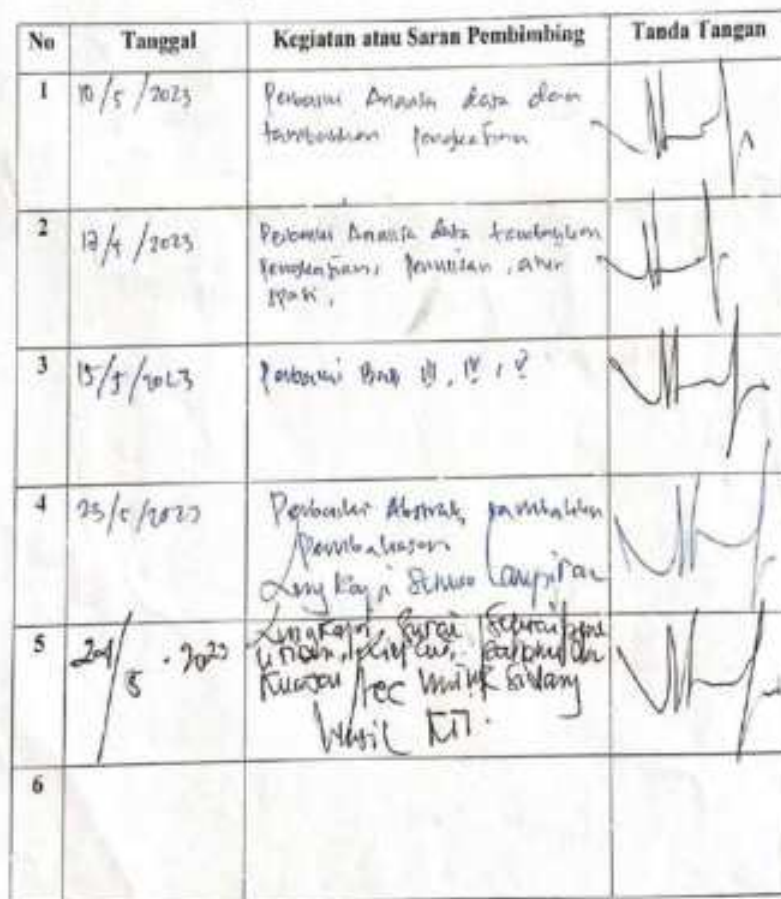 No Tanggal Kegiatan atau Saran Pembimbing Tanda Tangan
1 10/5/2023 Perbaiki Analisa data dan
tambahkan pengkajian
2 12/5/2023 Perbaiki Analisa data tambahkan
pengkajian, penulisan, atur
spasi,
3 15/5/2023 Perbaiki Bab III, IV, V
4 25/5/2023 Perbaiki Abstrak, tambahkan
pembahasan
Lengkapi semua lampiran
5 2023 Lengkapi, surat
acc untuk sidang
Hasil KTI.
6